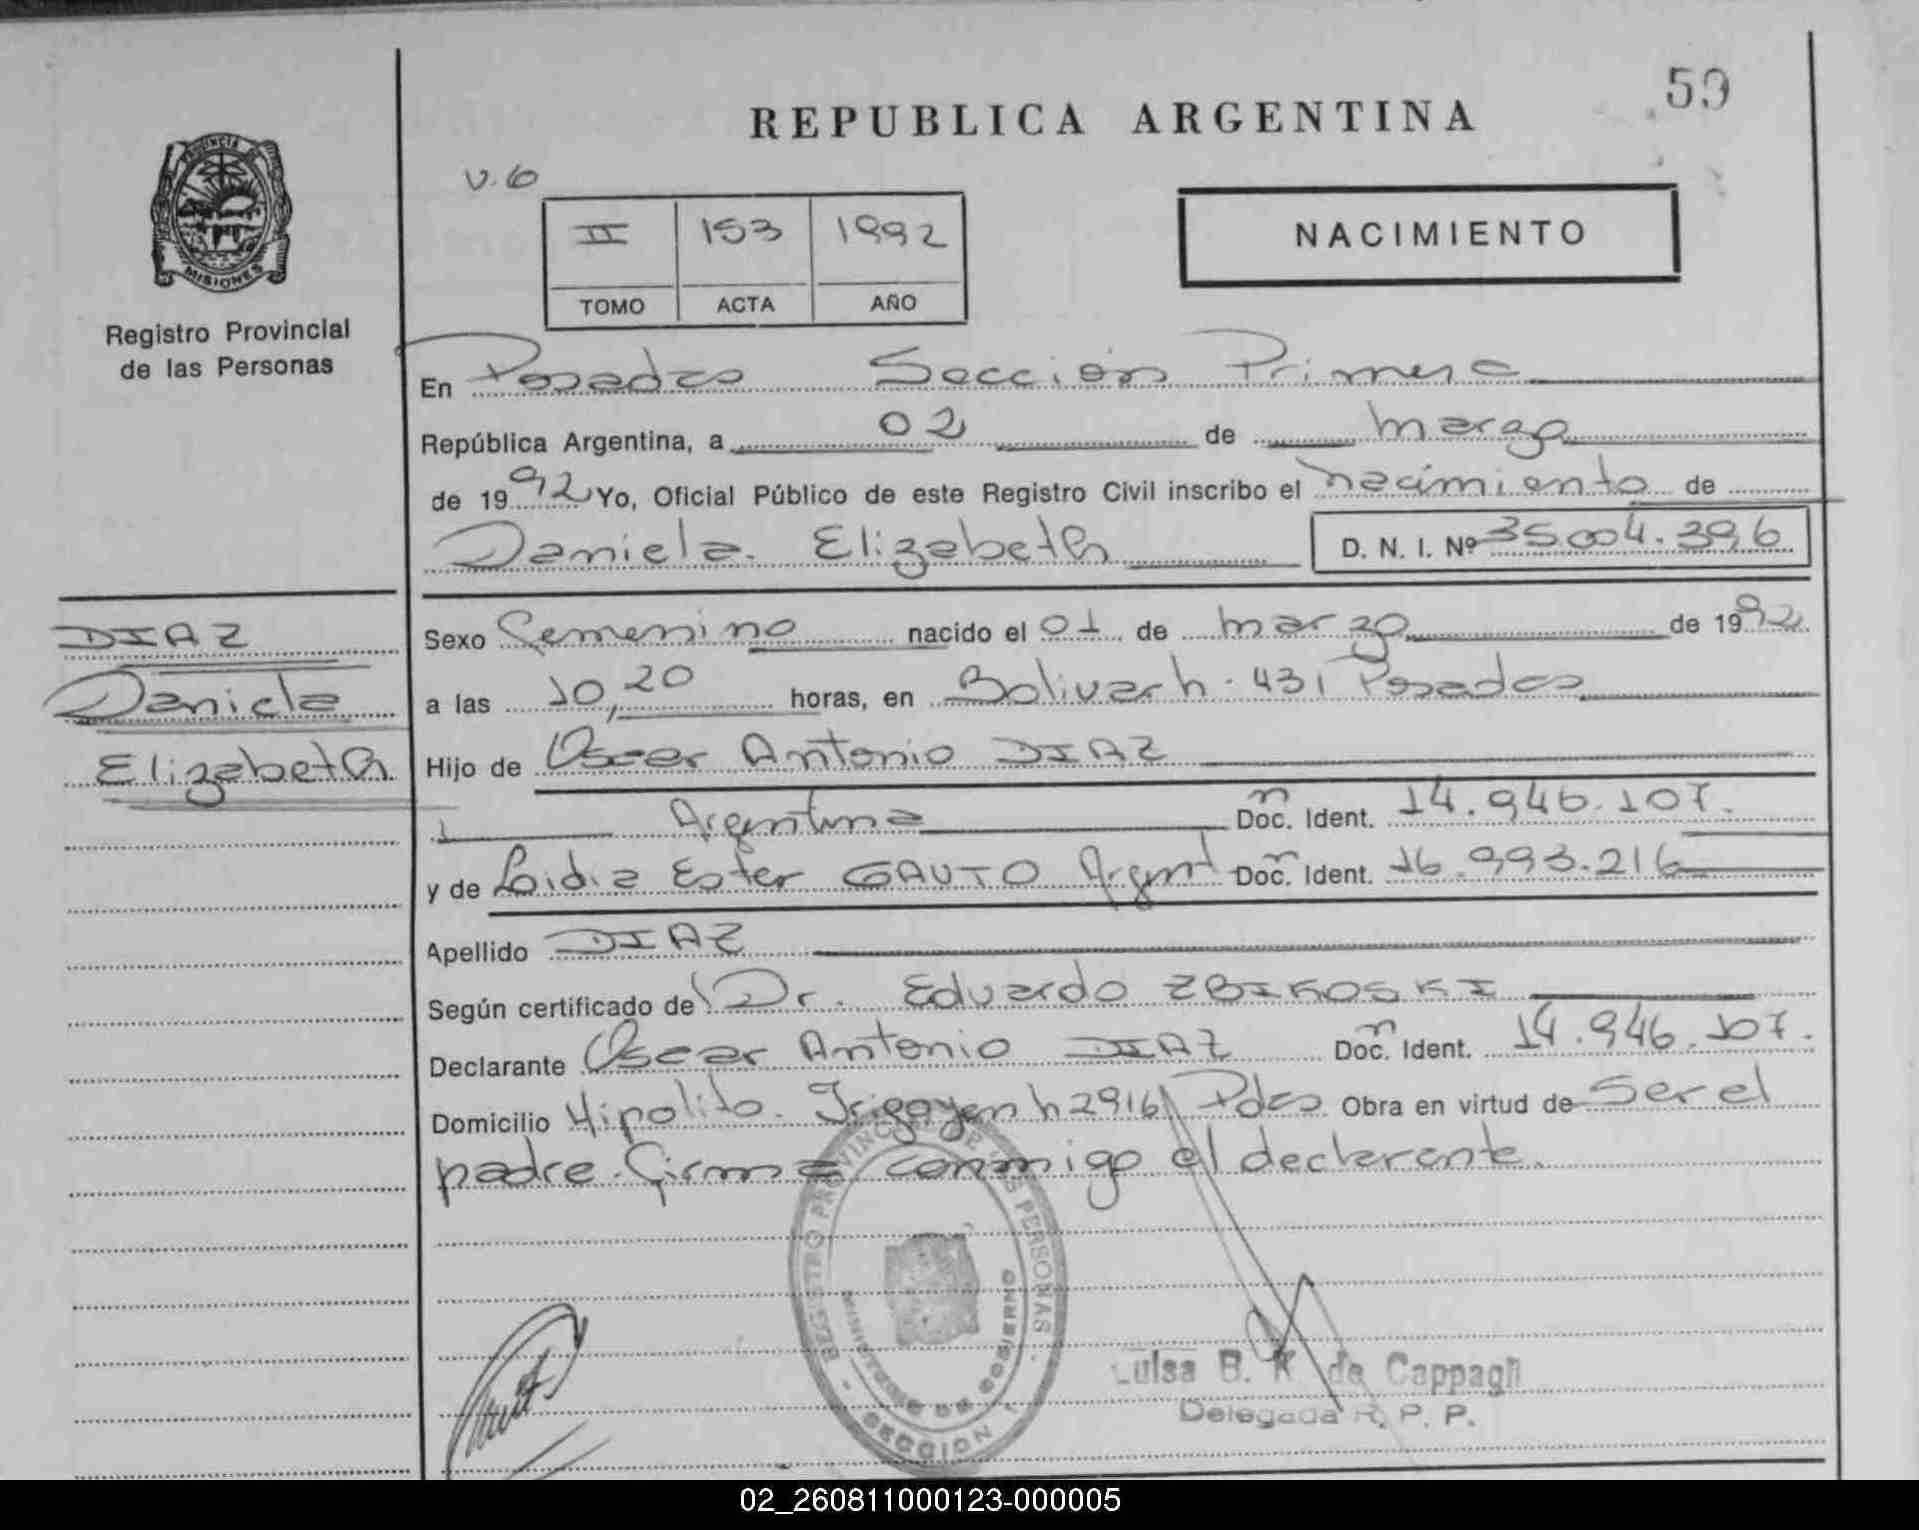 59
REPUBLICA ARGENTINA
v.6
II 153 1992
TOMO ACTA AÑO
NACIMIENTO
PROVINCIA DE
MISIONES
Registro Provincial
de las Personas
En Posadas Sección Primera
República Argentina, a 02 de marzo
de 1992 Yo, Oficial Público de este Registro Civil inscribo el nacimiento de
Daniela Elizabeth D. N. I. Nº 35.004.396
DIAZ
Daniela
Elizabeth
Sexo Femenino nacido el 01 de marzo de 1992
a las 10,20 horas, en Bolivar h. 431 Posadas
Hijo de Oscar Antonio DIAZ
Argentina Doc. Ident. 14.946.107.
y de Lidia Ester GAUTO Argent Doc. Ident. 16.993.216
Apellido DIAZ
Según certificado de Dr. Eduardo ZBIKOSKI
Declarante Oscar Antonio DIAZ Doc. Ident. 14.946.107.
Domicilio Hipolito Irigoyen h 2916 Pdas Obra en virtud de ser el
padre. Firma conmigo el declarante.
REGISTRO PROVINCIAL DE LAS PERSONAS
MINISTERIO DE GOBIERNO
SECCION 1
Luisa B. K de Cappagli
Delegada R. P. P.
02_260811000123-000005